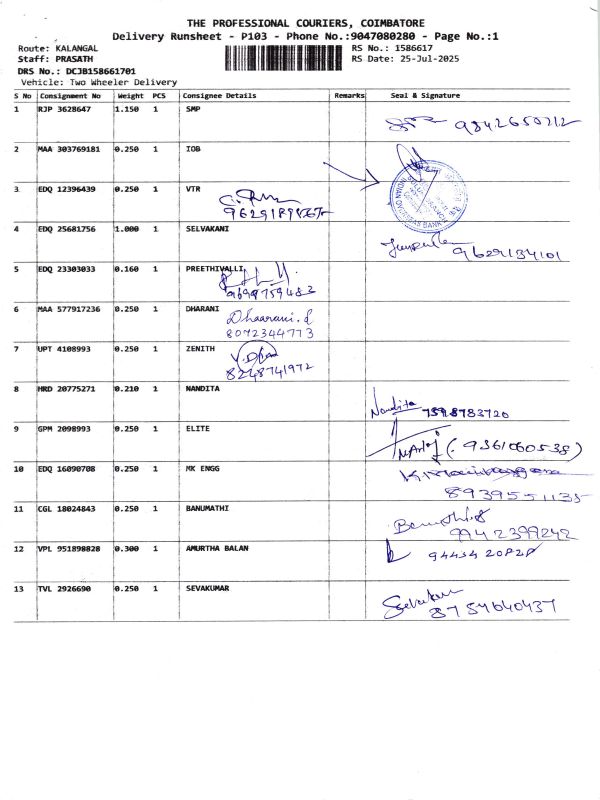 THE PROFESSIONAL COURIERS, COIMBATORE
Delivery Runsheet - P103 - Phone No.:9047080280 - Page No.:1
Route: KALANGAL RS No.: 1586617
Staff: PRASATH RS Date: 25-Jul-2025
DRS No.: DCJB158661701
Vehicle: Two Wheeler Delivery
S No Consignment No Weight PCS Consignee Details Remarks Seal & Signature
1 RJP 3628647 1.150 1 SMP
9842650212
2 MAA 303769181 0.250 1 IOB
INDIAN OVERSEAS BANK
3 EDQ 12396439 0.250 1 VTR
4 EDQ 25681756 1.000 1 SELVAKANI
9629134101
5 EDQ 23303033 0.160 1 PREETHIVALLI
9698759483
6 MAA 577917236 0.250 1 DHARANI
Dhaarani.d
8072344773
7 UPT 4108993 0.250 1 ZENITH
8248741972
8 HRD 20775271 0.210 1 NANDITA
Nandita 7598783720
9 GPM 2098993 0.250 1 ELITE
(9361060538)
10 EDQ 16090708 0.250 1 MK ENGG
8939551135
11 CGL 18024843 0.250 1 BANUMATHI
9942399242
12 VPL 951898828 0.300 1 AMURTHA BALAN
13 TVL 2926690 0.250 1 SEVAKUMAR
8754640437